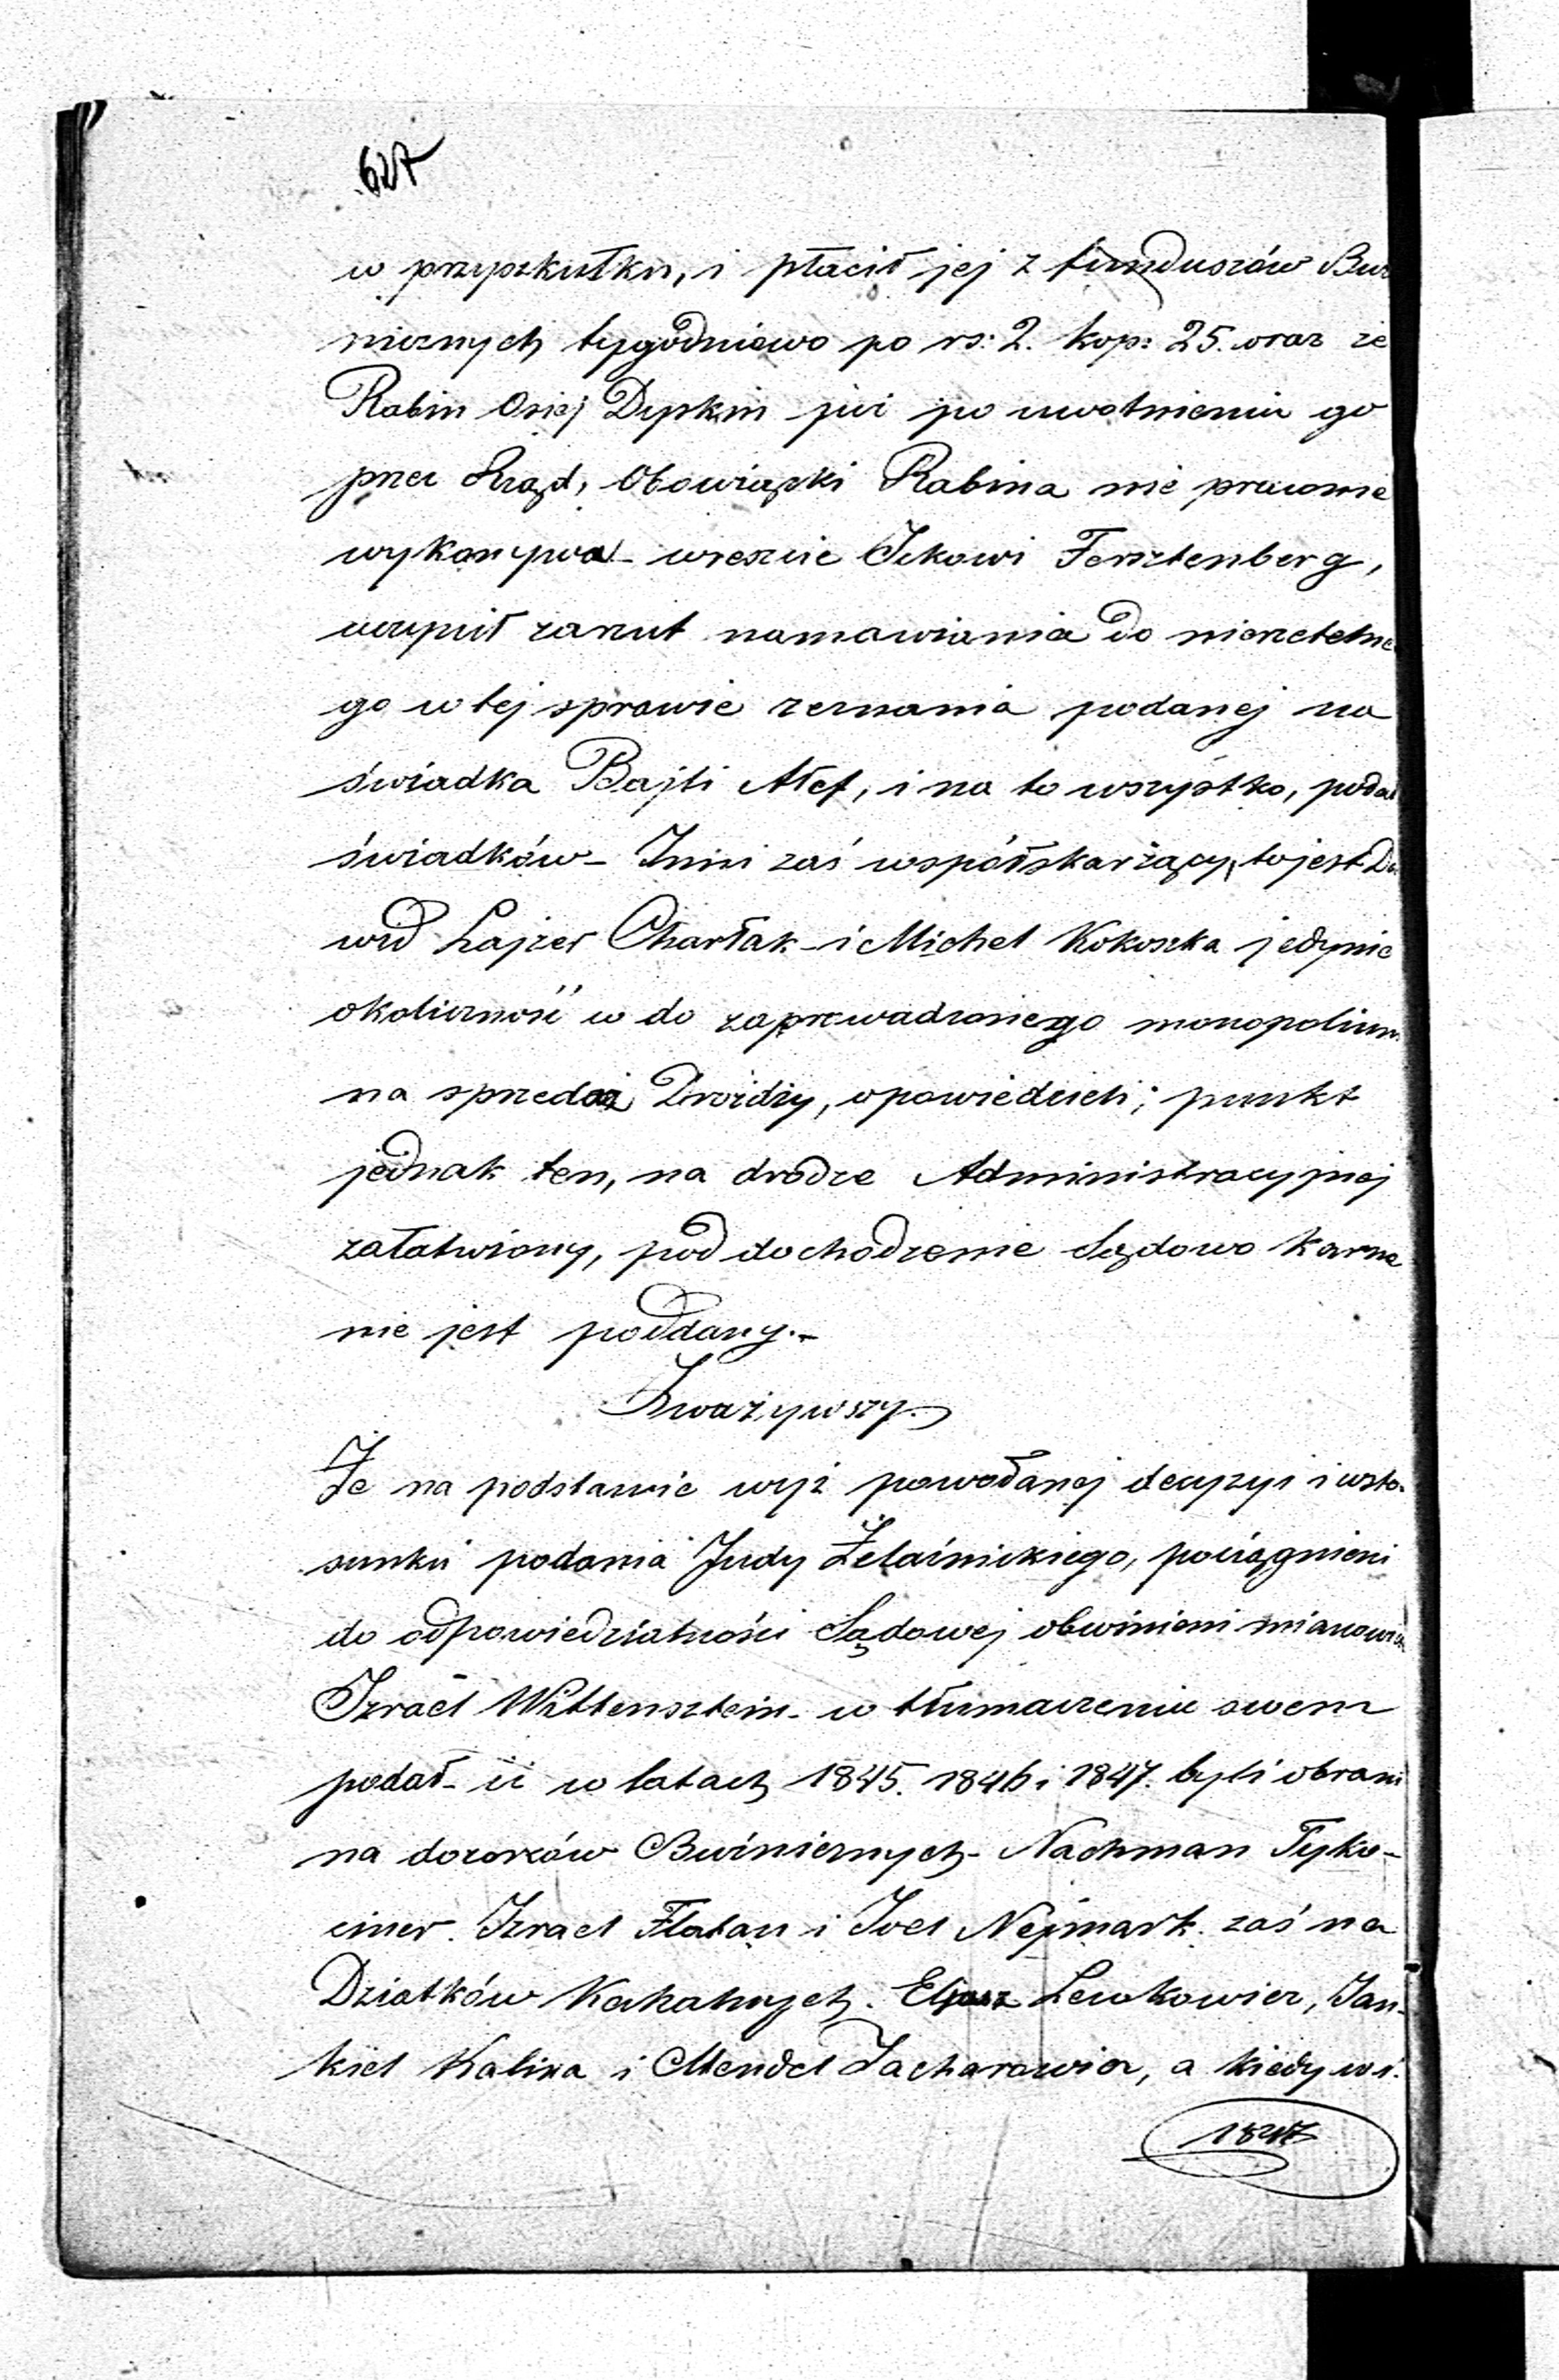 627
w przyszkułku, i płacił jej z funduszów Buż
nicznych tygodniowo po rs: 2. kop: 25. oraz że
Rabin Osiej Dyskin już po uwolnieniu go
przez Rząd, Obowiązki Rabina nie prawnie
wykonywał - wreszcie Ickowi Fersztenberg,
uczynił zarzut namawiania do nierzetelne
go w tej sprawie zeznania podanej na
świadka Bajli Ałef, i na to wszystko, podał
świadków - Inni zaś współskarżący, to jest Da
wid Lajzer Charłak - i Michel Kokoszka jedynie
okoliczność w do zaprowadzonego monopolium
na sprzedaż Drożdży, opowiedzieli; punkt
jednak ten, na drodze Administracyjnej
załatwiony, pod dochodzenie Sądowo karne
nie jest poddany. -
Zważywszy.
Że na podstawie wyż powołanej decyzyi i wsto-
sunku podania Judy Żelaźnickiego, pociągnieni
do odpowiedzialności Sądowej obwinieni mianowicie
Izrael Wittensztein - w tłumaczeniu swem
podał - iż w latach 1845. 1846 i 1847. byli obrani
na dozorców Bużnicznych - Nachman Tyko-
ciner. Izrael Flatau i Joel Nejmark. zaś na
Dziatków Kahalnych. Eljasz Lewkowicz, Jan-
kiel Kalina i Mendel Zacharowicz, a kiedy w r.
1847